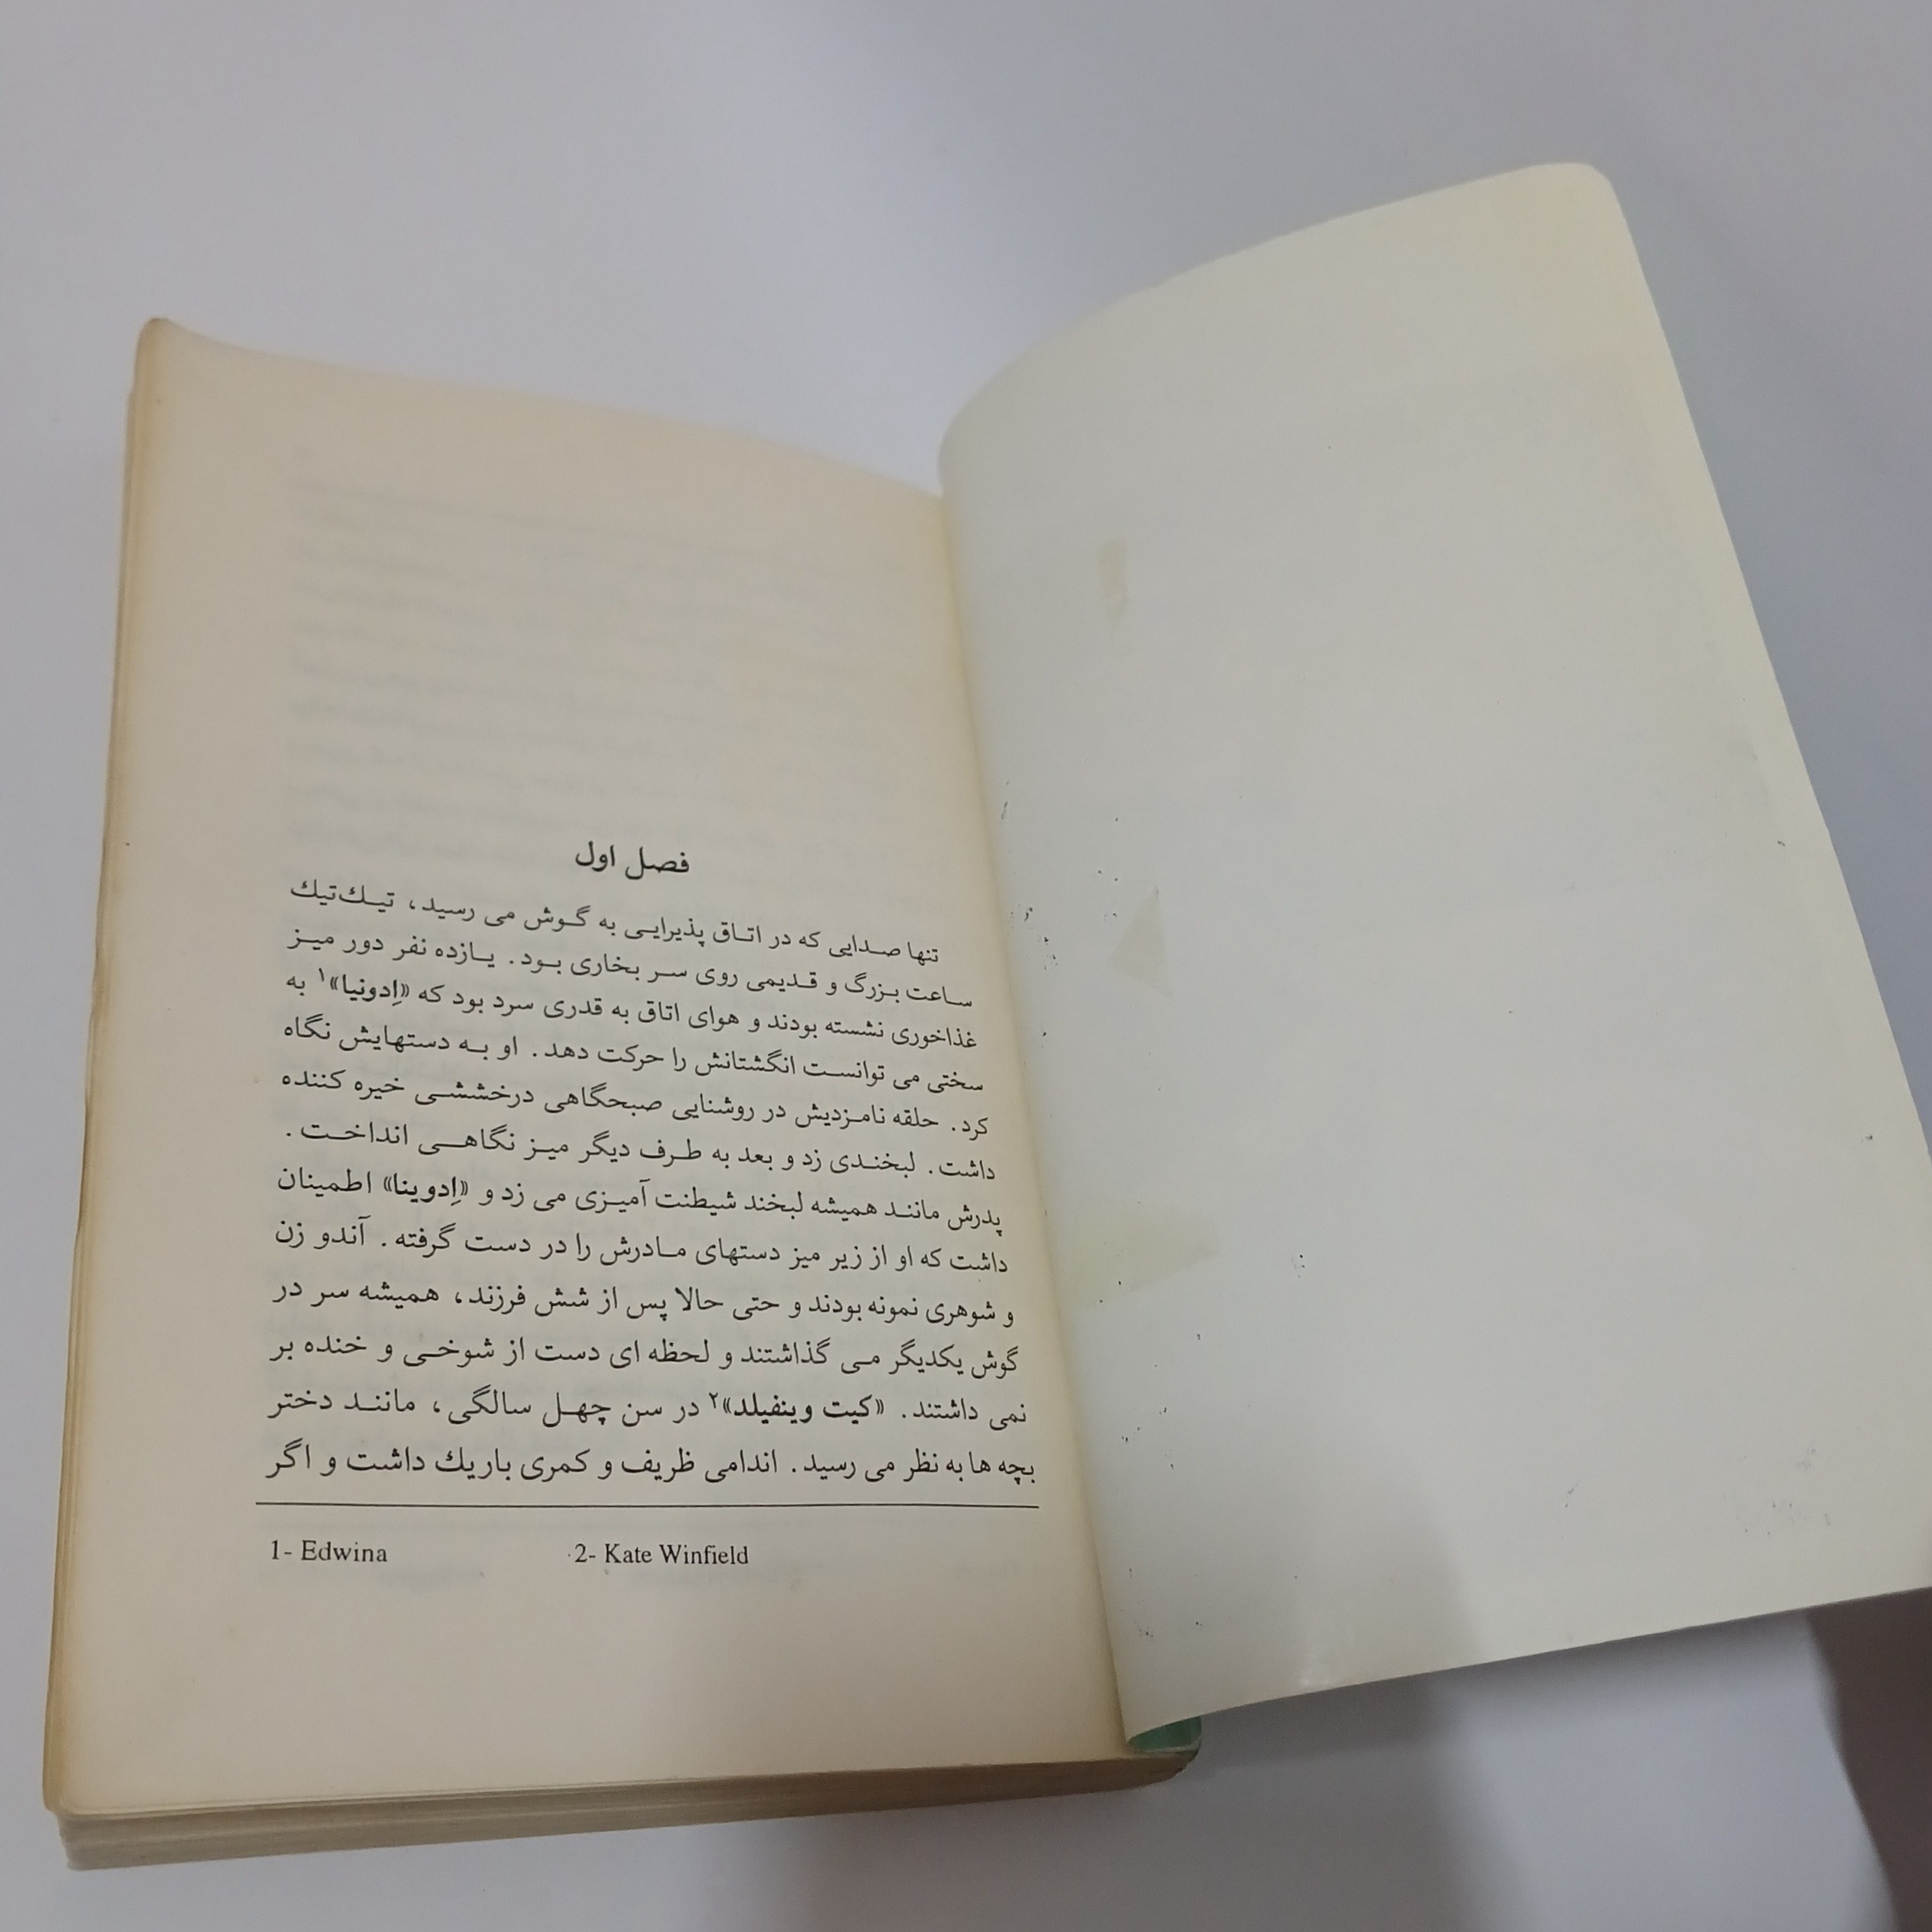 فصل اول
تنها صدایی که در اتاق پذیرایی به گوش می رسید، تیك‌تیك
ساعت بزرگ و قدیمی روی سر بخاری بود. یازده نفر دور میز
غذاخوری نشسته بودند و هوای اتاق به قدری سرد بود که «اِدونیا»۱ به
سختی می توانست انگشتانش را حرکت دهد. او به دستهایش نگاه
کرد. حلقه نامزدیش در روشنایی صبحگاهی درخششی خیره کننده
داشت. لبخندی زد و بعد به طرف دیگر میز نگاهی انداخت.
پدرش مانند همیشه لبخند شیطنت آمیزی می زد و «اِدوینا» اطمینان
داشت که او از زیر میز دستهای مادرش را در دست گرفته. آندو زن
و شوهری نمونه بودند و حتی حالا پس از شش فرزند، همیشه سر در
گوش یکدیگر می گذاشتند و لحظه ای دست از شوخی و خنده بر
نمی داشتند. «کیت وینفیلد»۲ در سن چهل سالگی، مانند دختر
بچه ها به نظر می رسید. اندامی ظریف و کمری باریك داشت و اگر
1- Edwina 2- Kate Winfield